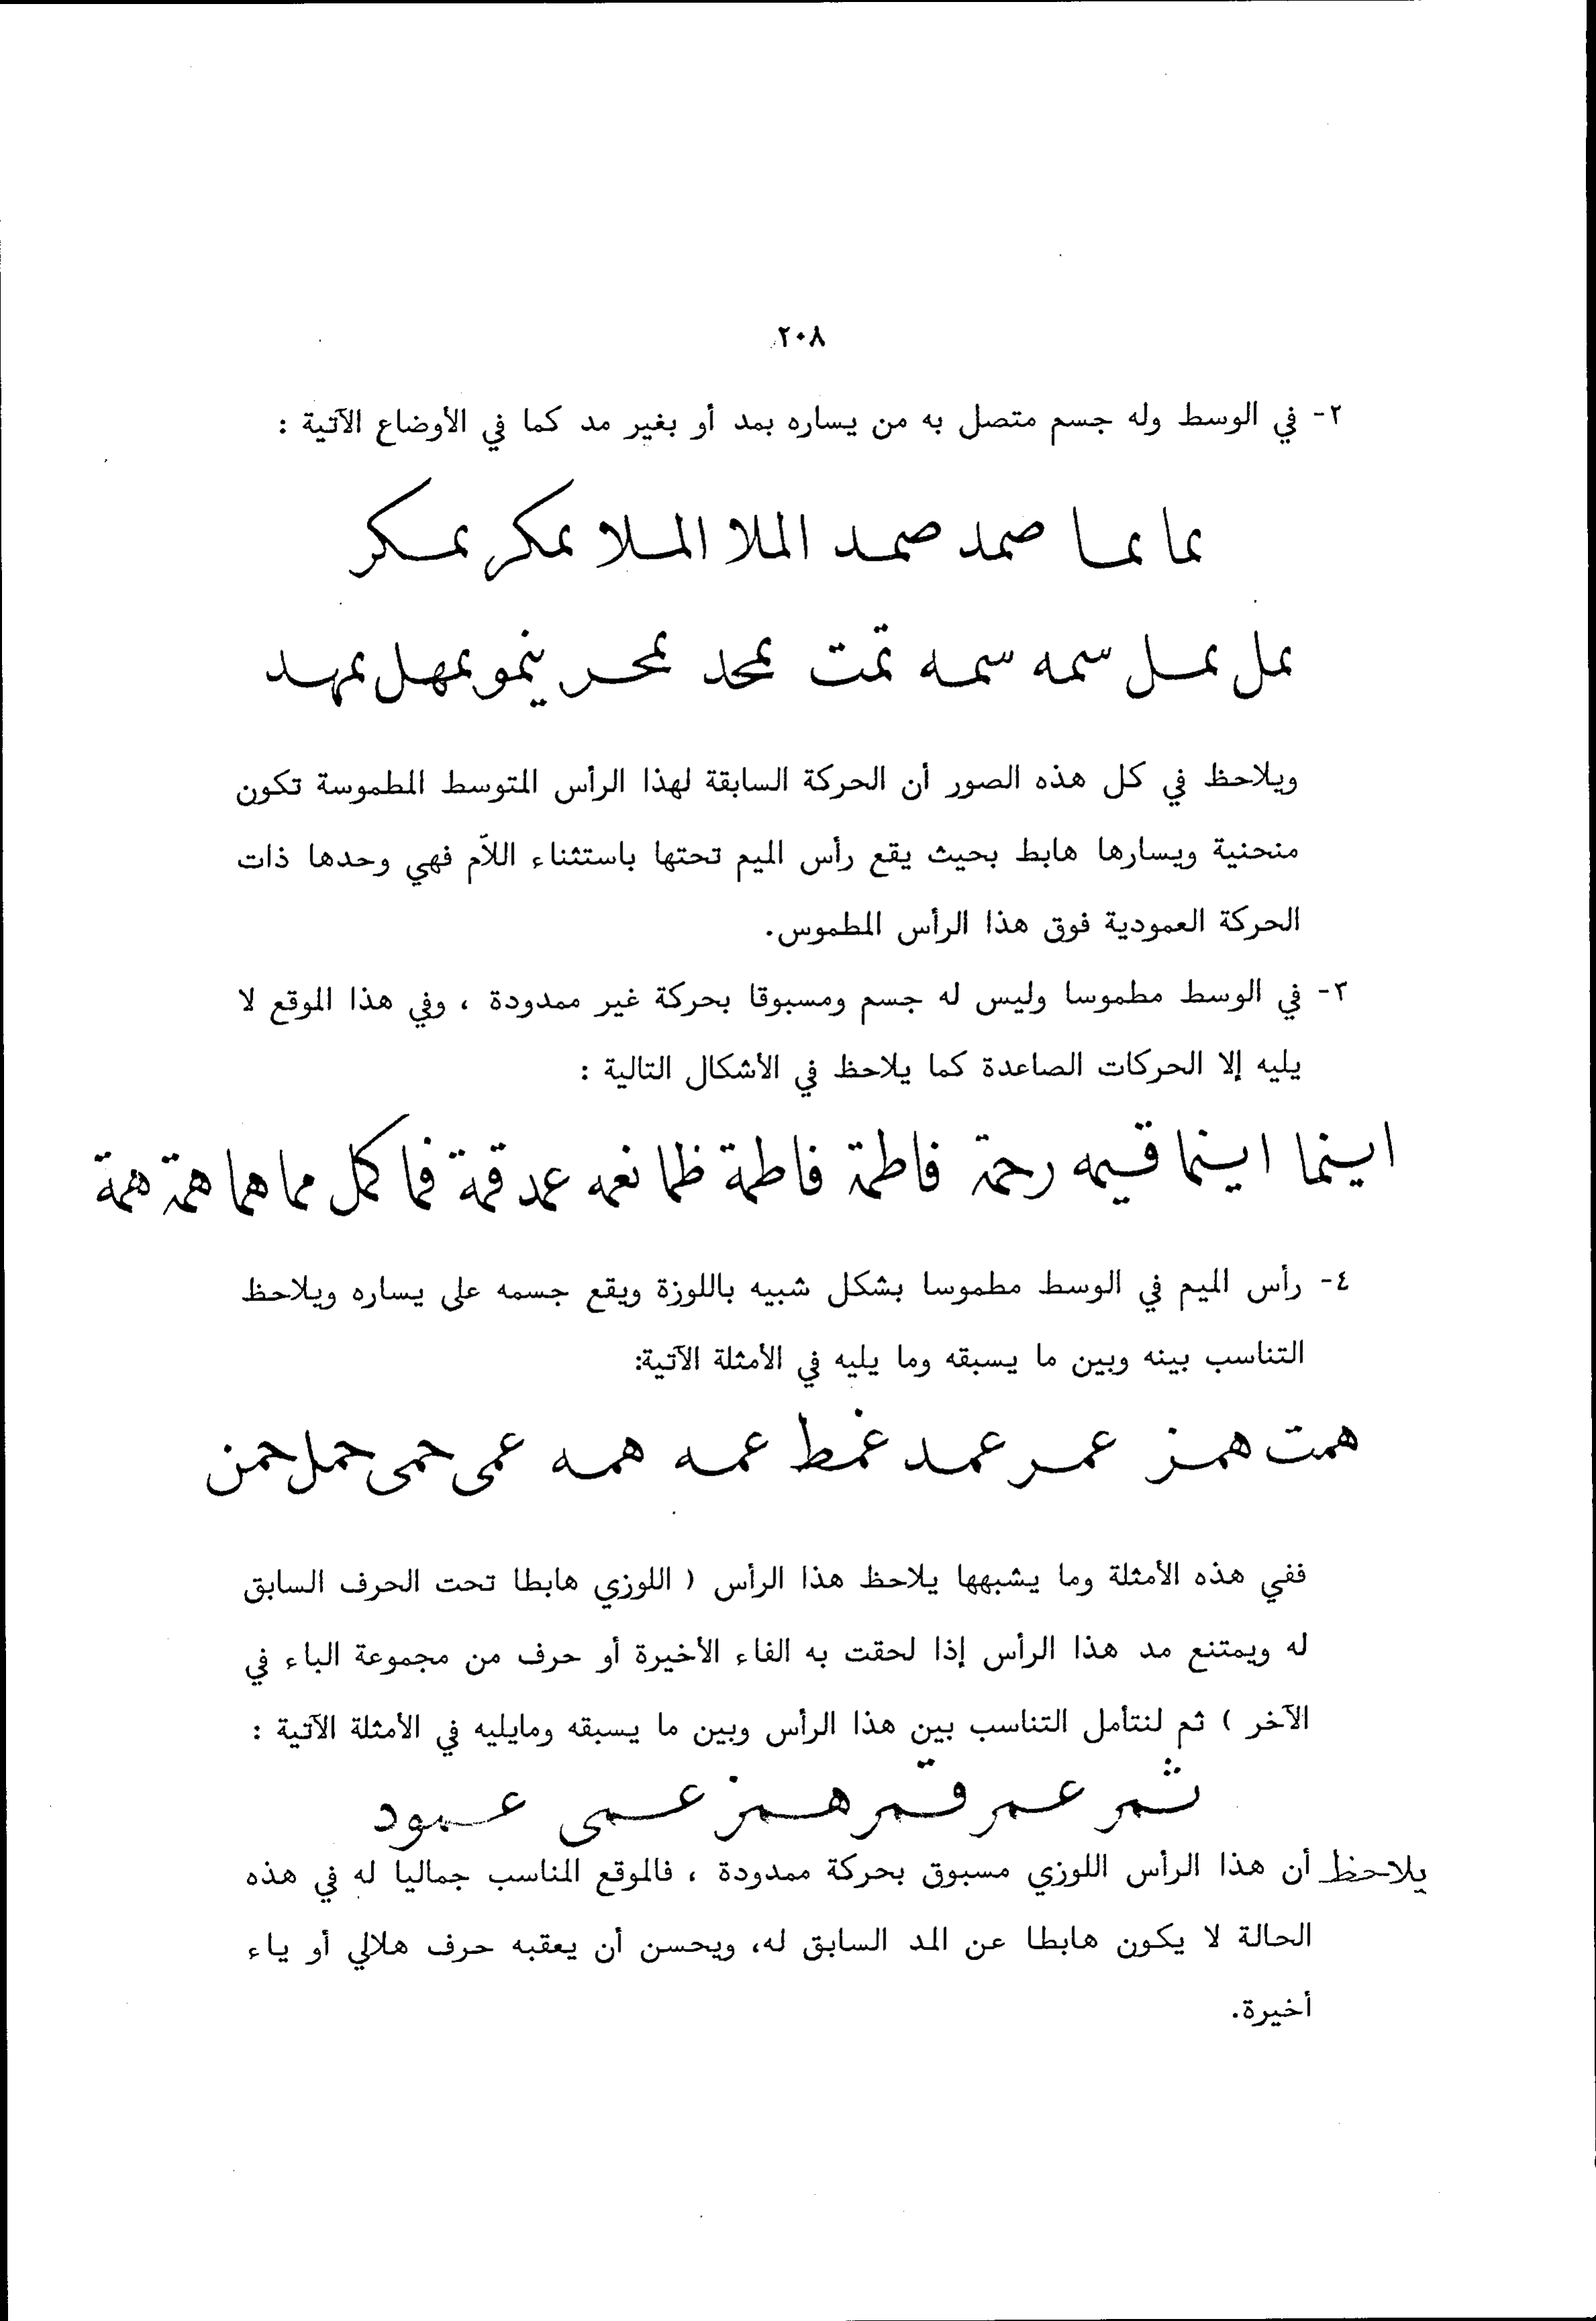 ٢٠٨
٢- في الوسط وله جسم متصل به من يساره بمد أو بغير مد كما في الأوضاع الآتية :
عا عـا صمد صمـد الملا المـلا عكر عـكر
عل عـل سمه سمـه تمت عحد عحـر ينمو عهـل عهـد
ويلاحظ في كل هذه الصور أن الحركة السابقة لهذا الرأس المتوسط المطموسة تكون
منحنية ويسارها هابط بحيث يقع رأس الميم تحتها باستثناء اللاّم فهي وحدها ذات
الحركة العمودية فوق هذا الرأس المطموس.
٣- في الوسط مطموسا وليس له جسم ومسبوقا بحركة غير ممدودة ، وفي هذا الموقع لا
يليه إلا الحركات الصاعدة كما يلاحظ في الأشكال التالية :
اينما اينما قيمه رحمة فاطمة فاطمة ظما نعمه عمد قمة فما كمل مما هما همة همة
٤- رأس الميم في الوسط مطموسا بشكل شبيه باللوزة ويقع جسمه على يساره ويلاحظ
التناسب بينه وبين ما يسبقه وما يليه في الأمثلة الآتية:
همت همـز عمـر عمـد غمط عمـه همـه عمى حمى حمل حمن
ففي هذه الأمثلة وما يشبهها يلاحظ هذا الرأس ( اللوزي هابطا تحت الحرف السابق
له ويمتنع مد هذا الرأس إذا لحقت به الفاء الأخيرة أو حرف من مجموعة الباء في
الآخر ) ثم لنتأمل التناسب بين هذا الرأس وبين ما يسبقه ومايليه في الأمثلة الآتية :
ثـمر عـمر قـمر هـمز عـمى عـمود
يلاحظ أن هذا الرأس اللوزي مسبوق بحركة ممدودة ، فالموقع المناسب جماليا له في هذه
الحالة لا يكون هابطا عن المد السابق له، ويحسن أن يعقبه حرف هلالي أو ياء
أخيرة.